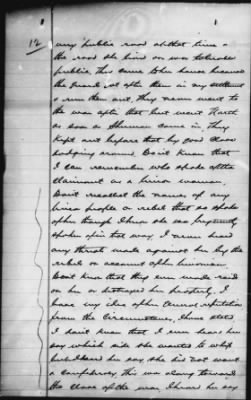 12
any public road at that time &
the road she lived on was tolerably
public, They came to her house because
the guard got after them in my settlement
& run them out, they never went to
the war after that but went North
as soon as Sherman came in, They
kept out before that by good close
dodging around. Dont know that
I can remember who spoke of the
claimant as a Union woman,
Dont recollect the names of any
Union people or rebels that so spoke
of her though I know she was frequently
spoken of in that way, I never heard
any threats made against her by the
rebels on account of her unionism
Dont know that they ever made raid
on her or destroyed her property. I
have my idea of her General reputation
from the Circumstances, I have stated
I don't know that I ever heard her
say which side she wanted to whip
but I heard her say she did not want
a confederacy, this was along toward
the close of the war, I heard her say